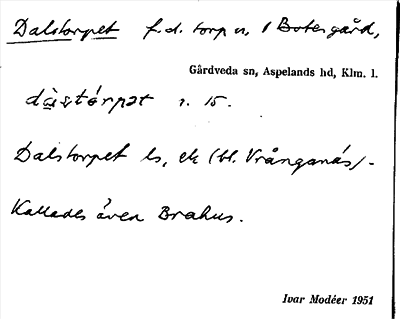 Dalstorpet f.d. torp u. Botesgård,
Gårdveda sn, Aspelands hd, Klm. l.
dàstórpət 1. 15.
Dalstorpet ls, ek (bl. Vrånganäs).
Kallades även Brahus.
Ivar Modéer 1951